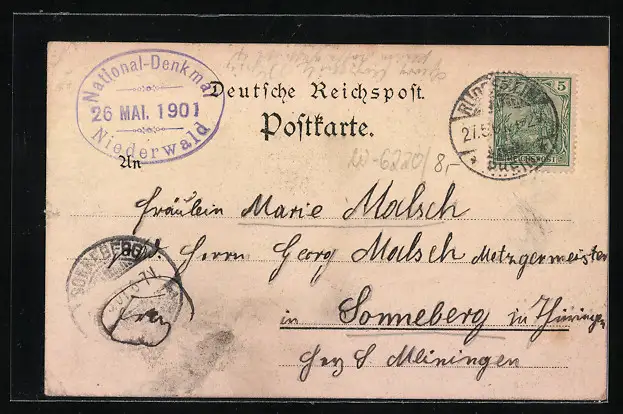 National-Denkmal
26 MAI. 1901
Niederwald
Deutsche Reichspost.
Postkarte.
5
REICHSPOST
An
W-6220/8,-
Fräulein Marie Malsch
Herrn Georg Malsch Metzgermeister
in Sonneberg in Thüringen
Herz S Meiningen